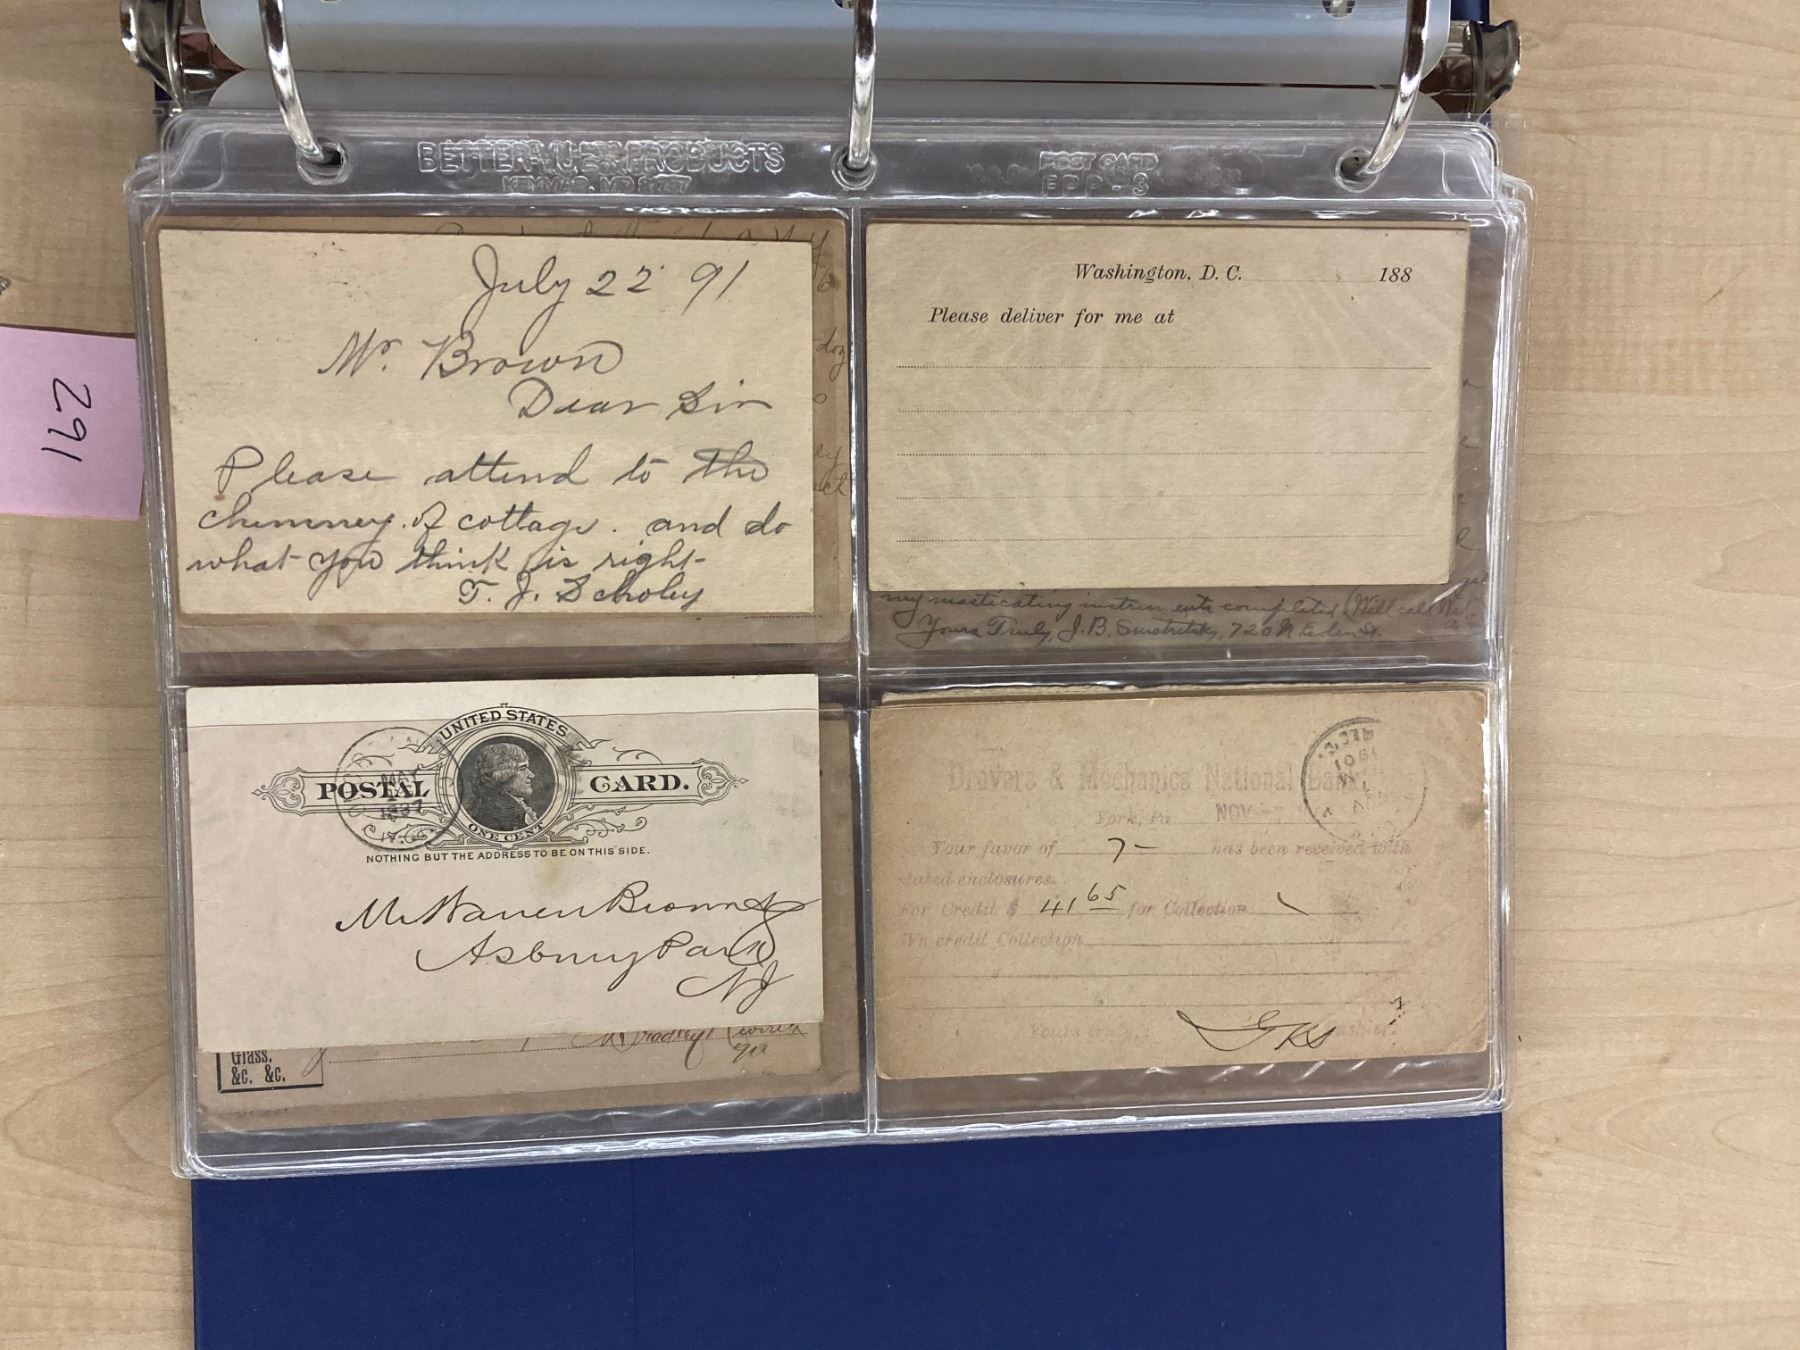 BETTER-VUE PRODUCTS
POST CARD
EPP-3
291
July 22 91
Mr. Brown
Dear Sir
Please attend to the
chimney of cottage. and do
what you think is right-
T. J. Scholey
doz
Washington, D. C. 188
Please deliver for me at
my masticating instruments completed
Yours Truly, J. B.
UNITED STATES
POSTAL CARD.
ONE CENT
NOTHING BUT THE ADDRESS TO BE ON THIS SIDE.
1887
Mr Warren Brown
Asbury Park
NJ
Glass.
&c. &c.
Drovers & Mechanics National Bank
York, Pa NOV
Your favor of 7- has been received with
stated enclosures.
For Credit $ 41 65 for Collection
We credit Collection
Yours truly
GKS
1901